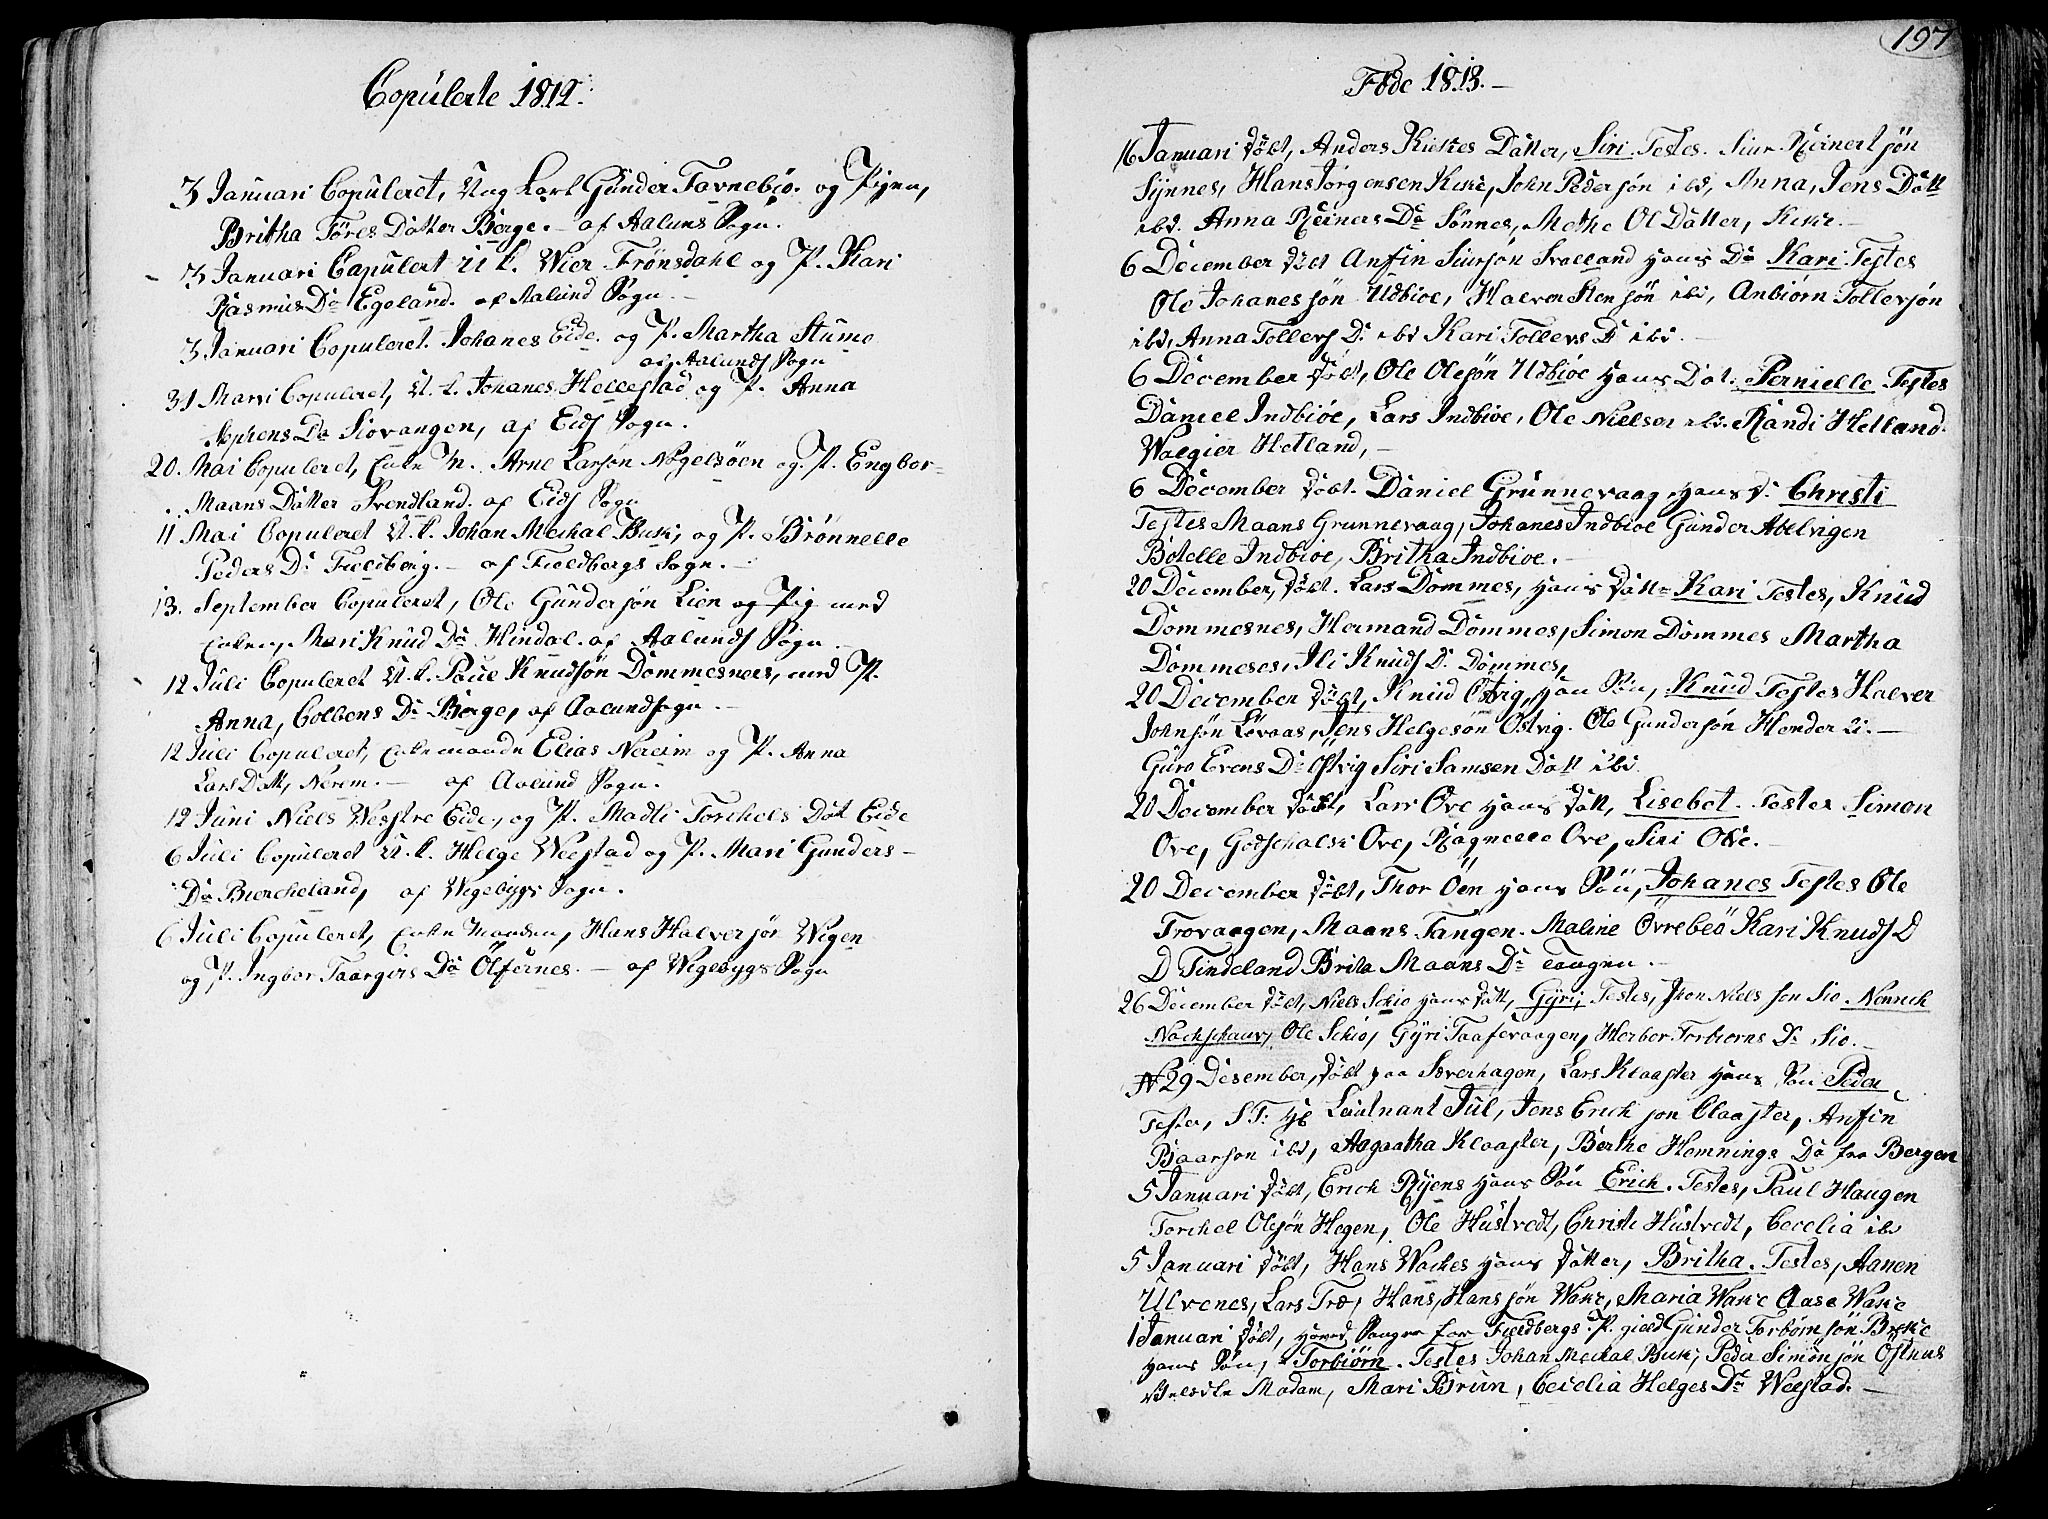 Copulerte 1812.
3 Januari Copuleret, Ung Karl Gunder Tavnebiø. og Pigen,
Britha Tøres Datter Berge. – af Aalunds Sogn.
3 Januari Capulert U K. Wier Frønsdahl og P. Kari
Rasmus Da Egeland. af Aalund Sogn. –
3 Januari Copuleret. Johanes Eide. og P. Martha Stumo
af Aalunds Sogn
31 Marsi Copuleret, U. k. Johanes Hellestad og P. Anna
Stephens Da Siovangen, af Eids Sogn.
20. Mai Copuleret, Enke M. Arne Larsøn Nøgelsöen og P. Engbor-
Maans Datter Svendland. af Eids Sogn
11 Mai Copuleret U. k. Johan Meckal Busk, og P. Brønnelle
Peders D. Fieldberg. – af Fieldbergs Sogn. –
13. September Copuleret, Ole Gundersøn Lien og Pig med
Enken, Mari Knud Da Hindal. af Aalunds Sogn
12 Juli Copuleret U. k. Paul Knudsøn Dommesnees, med P.
Anna, Colbens Da Berge, af Aalundsogn. –
12 Juli Copuleret, Enkemanden Elias Nereim og P. Anna
Lars Datt, Nerem. – af Aalund Sogn.
12 Juni Niels Westre Eide, og P. Madli Torchels Dat Eide
6 Juli Copuleret U. k. Helge Weestad og P. Mari Gunders –
Da Biercheland, af Wigebygs Sogn.
6 Juli Copuleret, Enke Manden, Hans Halversjøn Wigen
og P. Ingbor Taargirs Da Ölfernes. – af Wigebygs Sogn
197
Føde 1813. –
16 Januari døbt, Anders Kickes Datter, Siri. Testes. Siur Reinertsjøn
Synnes, Hans Jørgensen Kike, John Pedersjøn ibd, Anna, Jens Datt
ibd. Anna Reiners Da Sønnes, Methe Ol Datter, Kike. –
6 December døbt Anfin Siursjøn Svalland hans Da Kari Testes
Ole Johanessjøn Udbioe, Halvor Stensjøn ibi, Anbiørn Tollevsjøn
ibd, Anna Tollevs D. ibd Kari Tollevs D ibi. –
6 December døbt, Ole Olesjøn Udbiøe hans Dat. Pernielle Testes
Daniel Indbiøe, Lars Indbioe, Ole Nielsen ibd. Randi Hetland.
Walgier Hetland, –
6 December døbt. Daniel Grunnevaag hans D. Christi
Testes Maans Grunnevaag, Johanes Indbioe Gunder Abelvigen
Botelle Indbioe, Britha Indbioe. –
20 December, døbt. Lars Dommes, hans datt Kari Testes, Knud
Dommesnes, Hermand Dommes, Simon Dommes Martha
Dommeses, Ili Knuds D. Dommes,
20 December døbt, Knud Östvig, han Søn, Knud Testes Halver
Johnsjøn Lövaas, Jens Helgesøn Östvig. Ole Gundersjøn Hender li. –
Guro Evens Da Östvig Siri Samsen Datt ibi
20 December døbt, Lars Ove hans datt, Lisebet. Testes Simon
Ove, Godschalk Ove, Ragnelle Ove, Siri Ove. –
20 December døbt, Thor Öen hans Søn, Johanes Testes Ole
Trovaagen, Maans Tangen. Maline Övrebeö Kari Knuds D
D Tindeland Brita Maans Da Tangen. –
26 December døbt, Niels Schio hans datt, Gyri, Testes, Jhon Niels søn Sio. Nenrich
Nockschauv, Ole Schio, Gyri Taafevaagen, Herbor Torbiorns Da Sio. –
N 29 Desember, døbt paa Soverhagen, Lars Klaaster hans Søn Peder
Testes, S T. Hr Leutnant Jul, Jens Erichsjon Claaster, Anfin
Baarson ibd, Aagaatha Klaaster, Berthe Hemnings Da fra Bergen
5 Januari døbt, Erich Ryens hans Søn Erich. Testes, Paul Haugen
Torchel Olesjøn Hegen, Ole Hustvedt, Christi Hustvedt, Cecelia ibi
5 Januari døbt, Hans Wackes hans datter, Britha. Testes, Aanen
Ulvenes, Lars Træ, Hans Hanssjøn Wake, Maria Wake Aase Wake
1 Januari døbt, Hoved Sogne for Fieldbergs P. gield Gunder Torbörnsjøn Buske
hans Søn, Torbiørn. Testes Johan Meckal Busk, Peder Simönsjøn Östnus
Madam, Mari Brun, Cecelia Helges Da Weestad. –